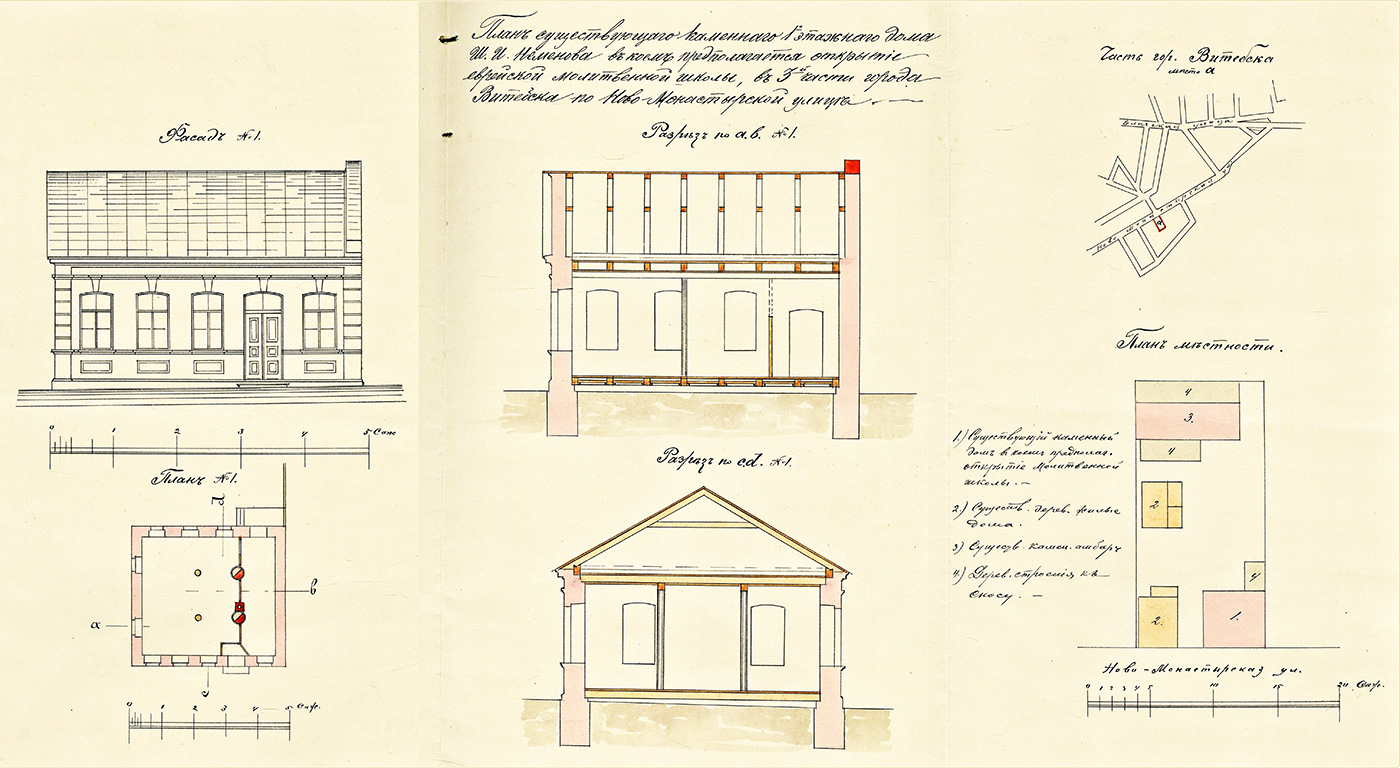 Планъ существующаго каменнаго 1º этажнаго дома
Ш. И. Неменова въ коемъ предполагается открытіе
еврейской молитвенной школы, въ 3й части города
Витебска по Ново-Монастырской улицѣ. —
Фасадъ №1.
0 1 2 3 4 5 Саж
Планъ №1.
d
a
в
c
0 1 2 3 4 5 Саж.
Разрѣзъ по а.в. №1.
Разрѣзъ по c.d. №1.
Часть гор. Витебска
мѣсто а
улица
а
Планъ мѣстности.
1.) Существующій каменный
домъ въ коемъ предполаг.
открытіе молитвенной
школы. —
2.) Существ. дерев. жилые
дома.
3) Существ. камен. амбаръ
4.) Дерев. строенія къ
сносу. —
4
3.
4
2
4
2.
1.
Ново-Монастырская ул.
0 1 2 3 4 5 10 15 20 Саж.